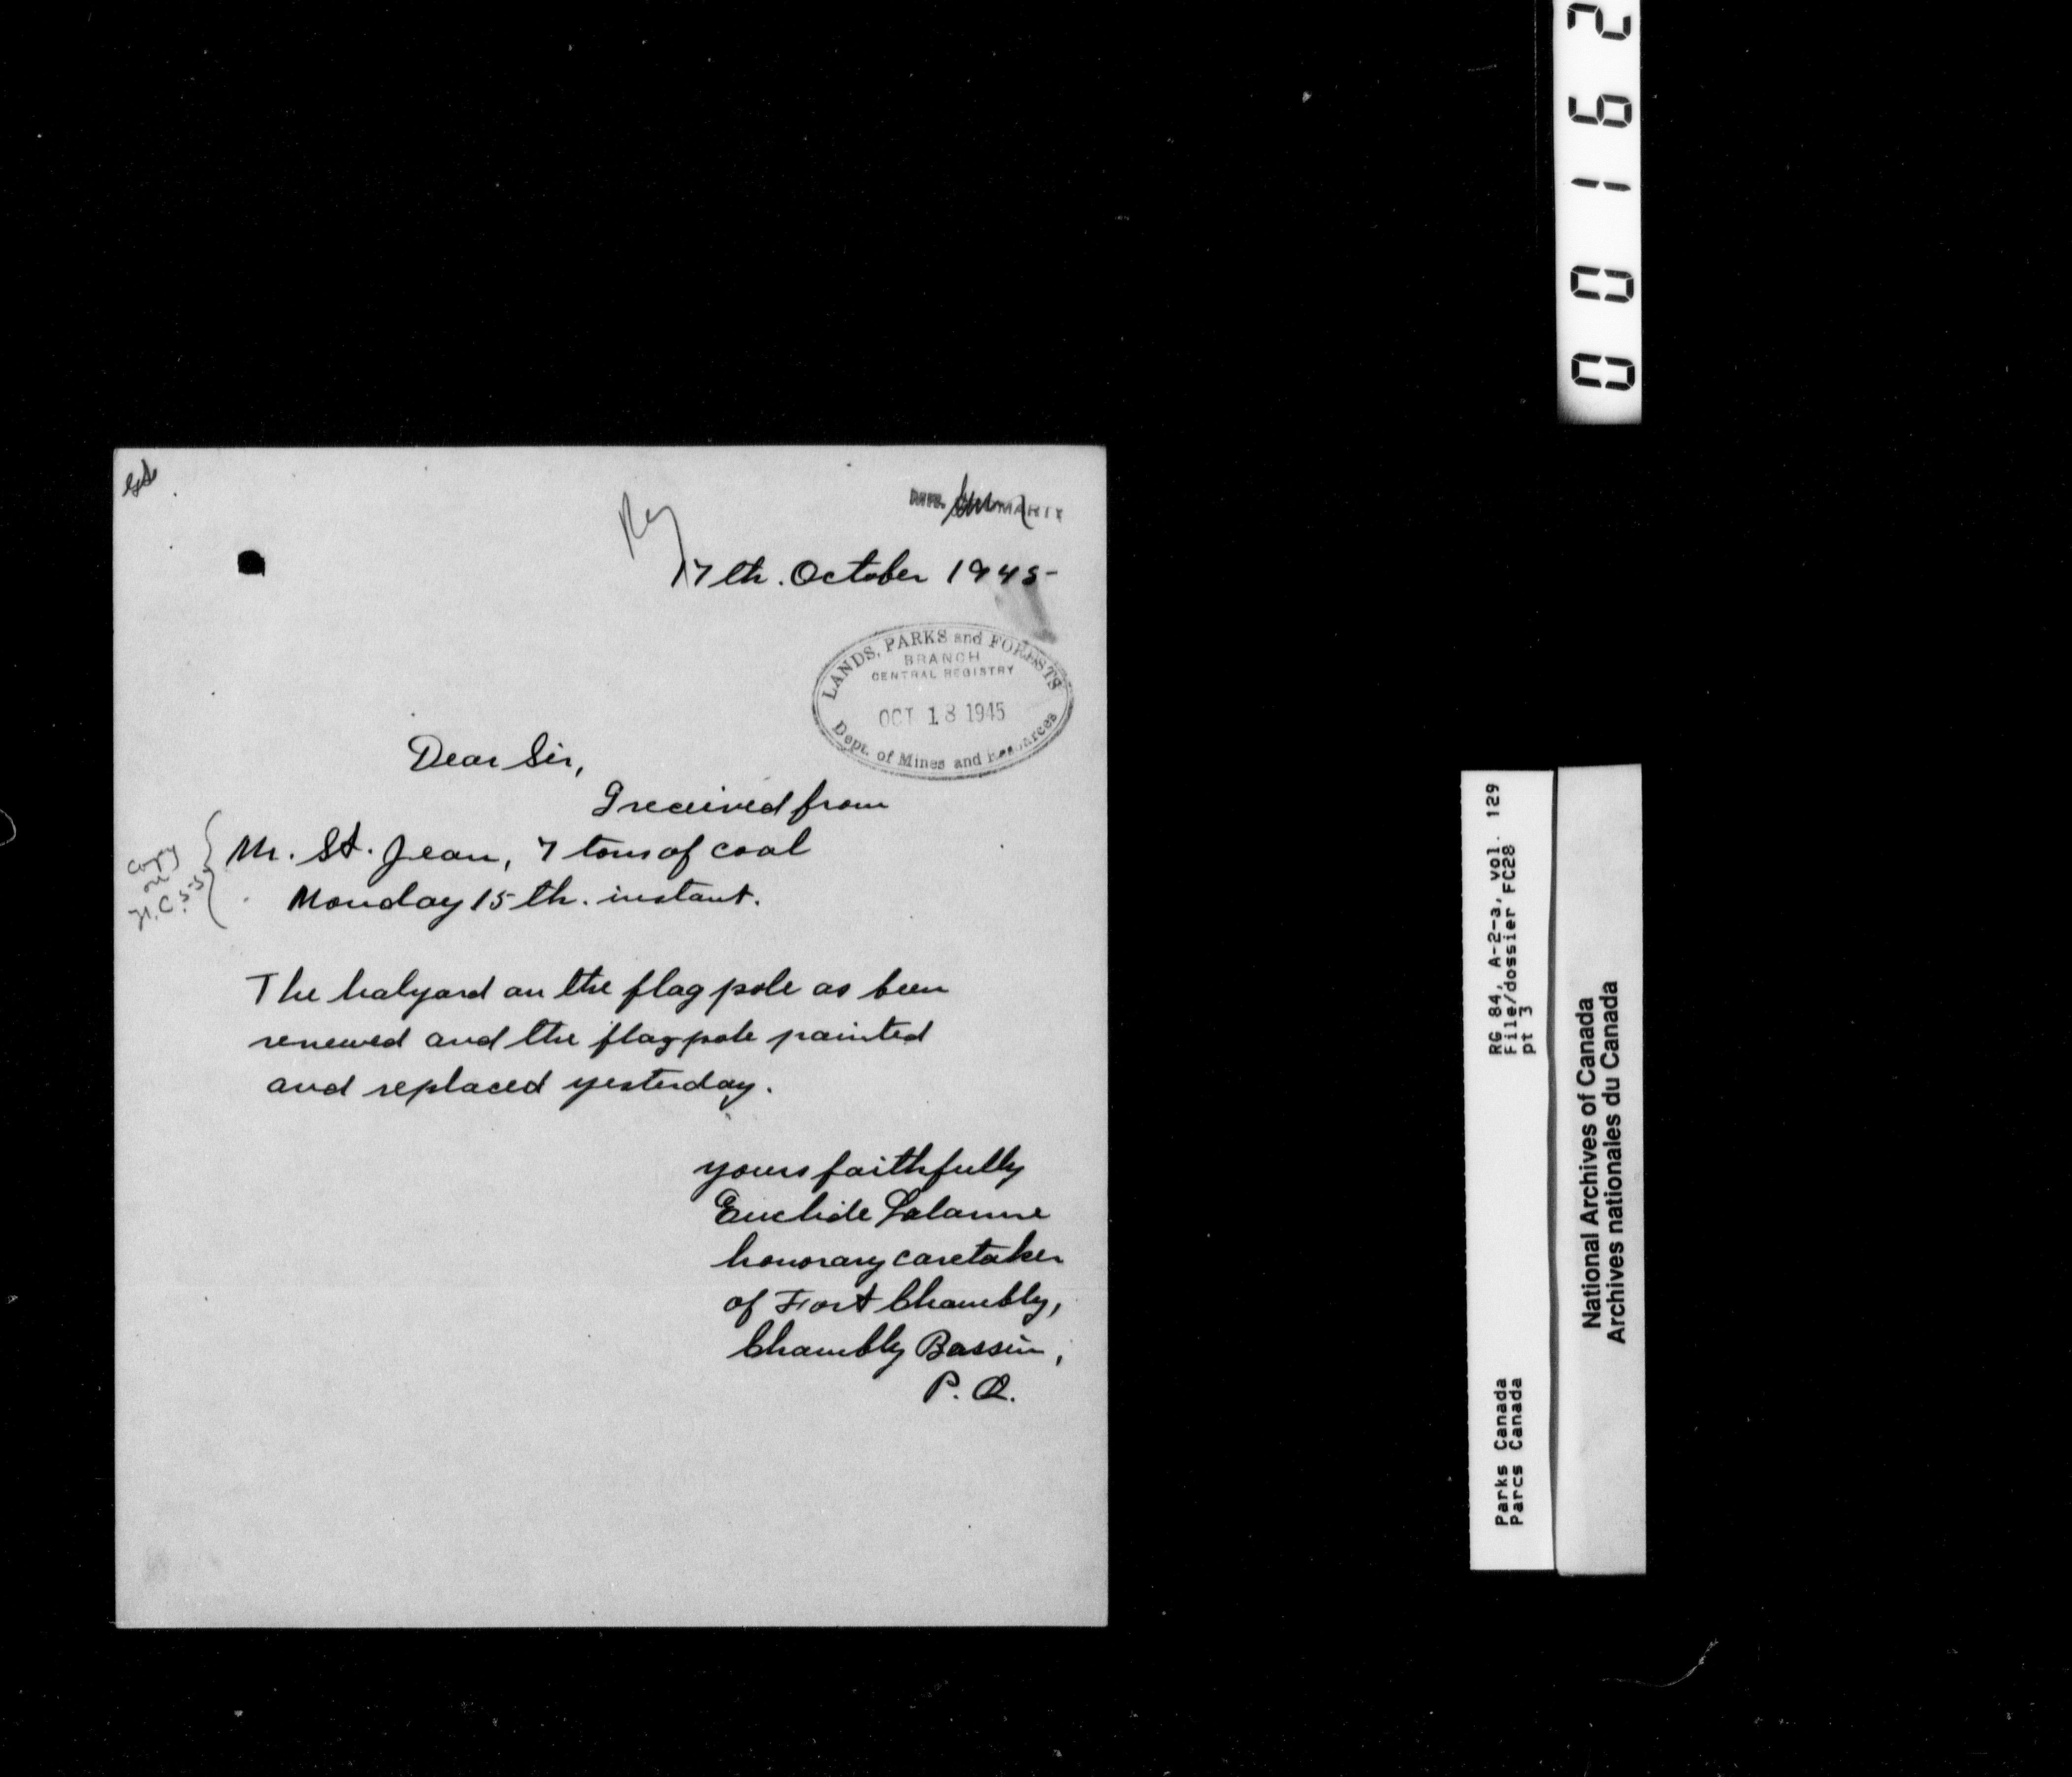 17th. October 1945-
LANDS, PARKS and FORESTS
BRANCH
CENTRAL REGISTRY
OCT 18 1945
Dept. of Mines and Resources
Dear Sir,
I received from
Mr. St. Jean, 7 tons of coal
Monday 15th. instant.
copy
on
The halyard on the flag pole as been
renewed and the flagpole painted
and replaced yesterday.
yours faithfully
Euclide Lalanne
honorary caretaker
of Fort Chambly,
Chambly Bassin,
P. Q.
00162
RG 84, A-2-a, vol. 129
File/dossier FC28
pt 3
Parks Canada
Parcs Canada
National Archives of Canada
Archives nationales du Canada